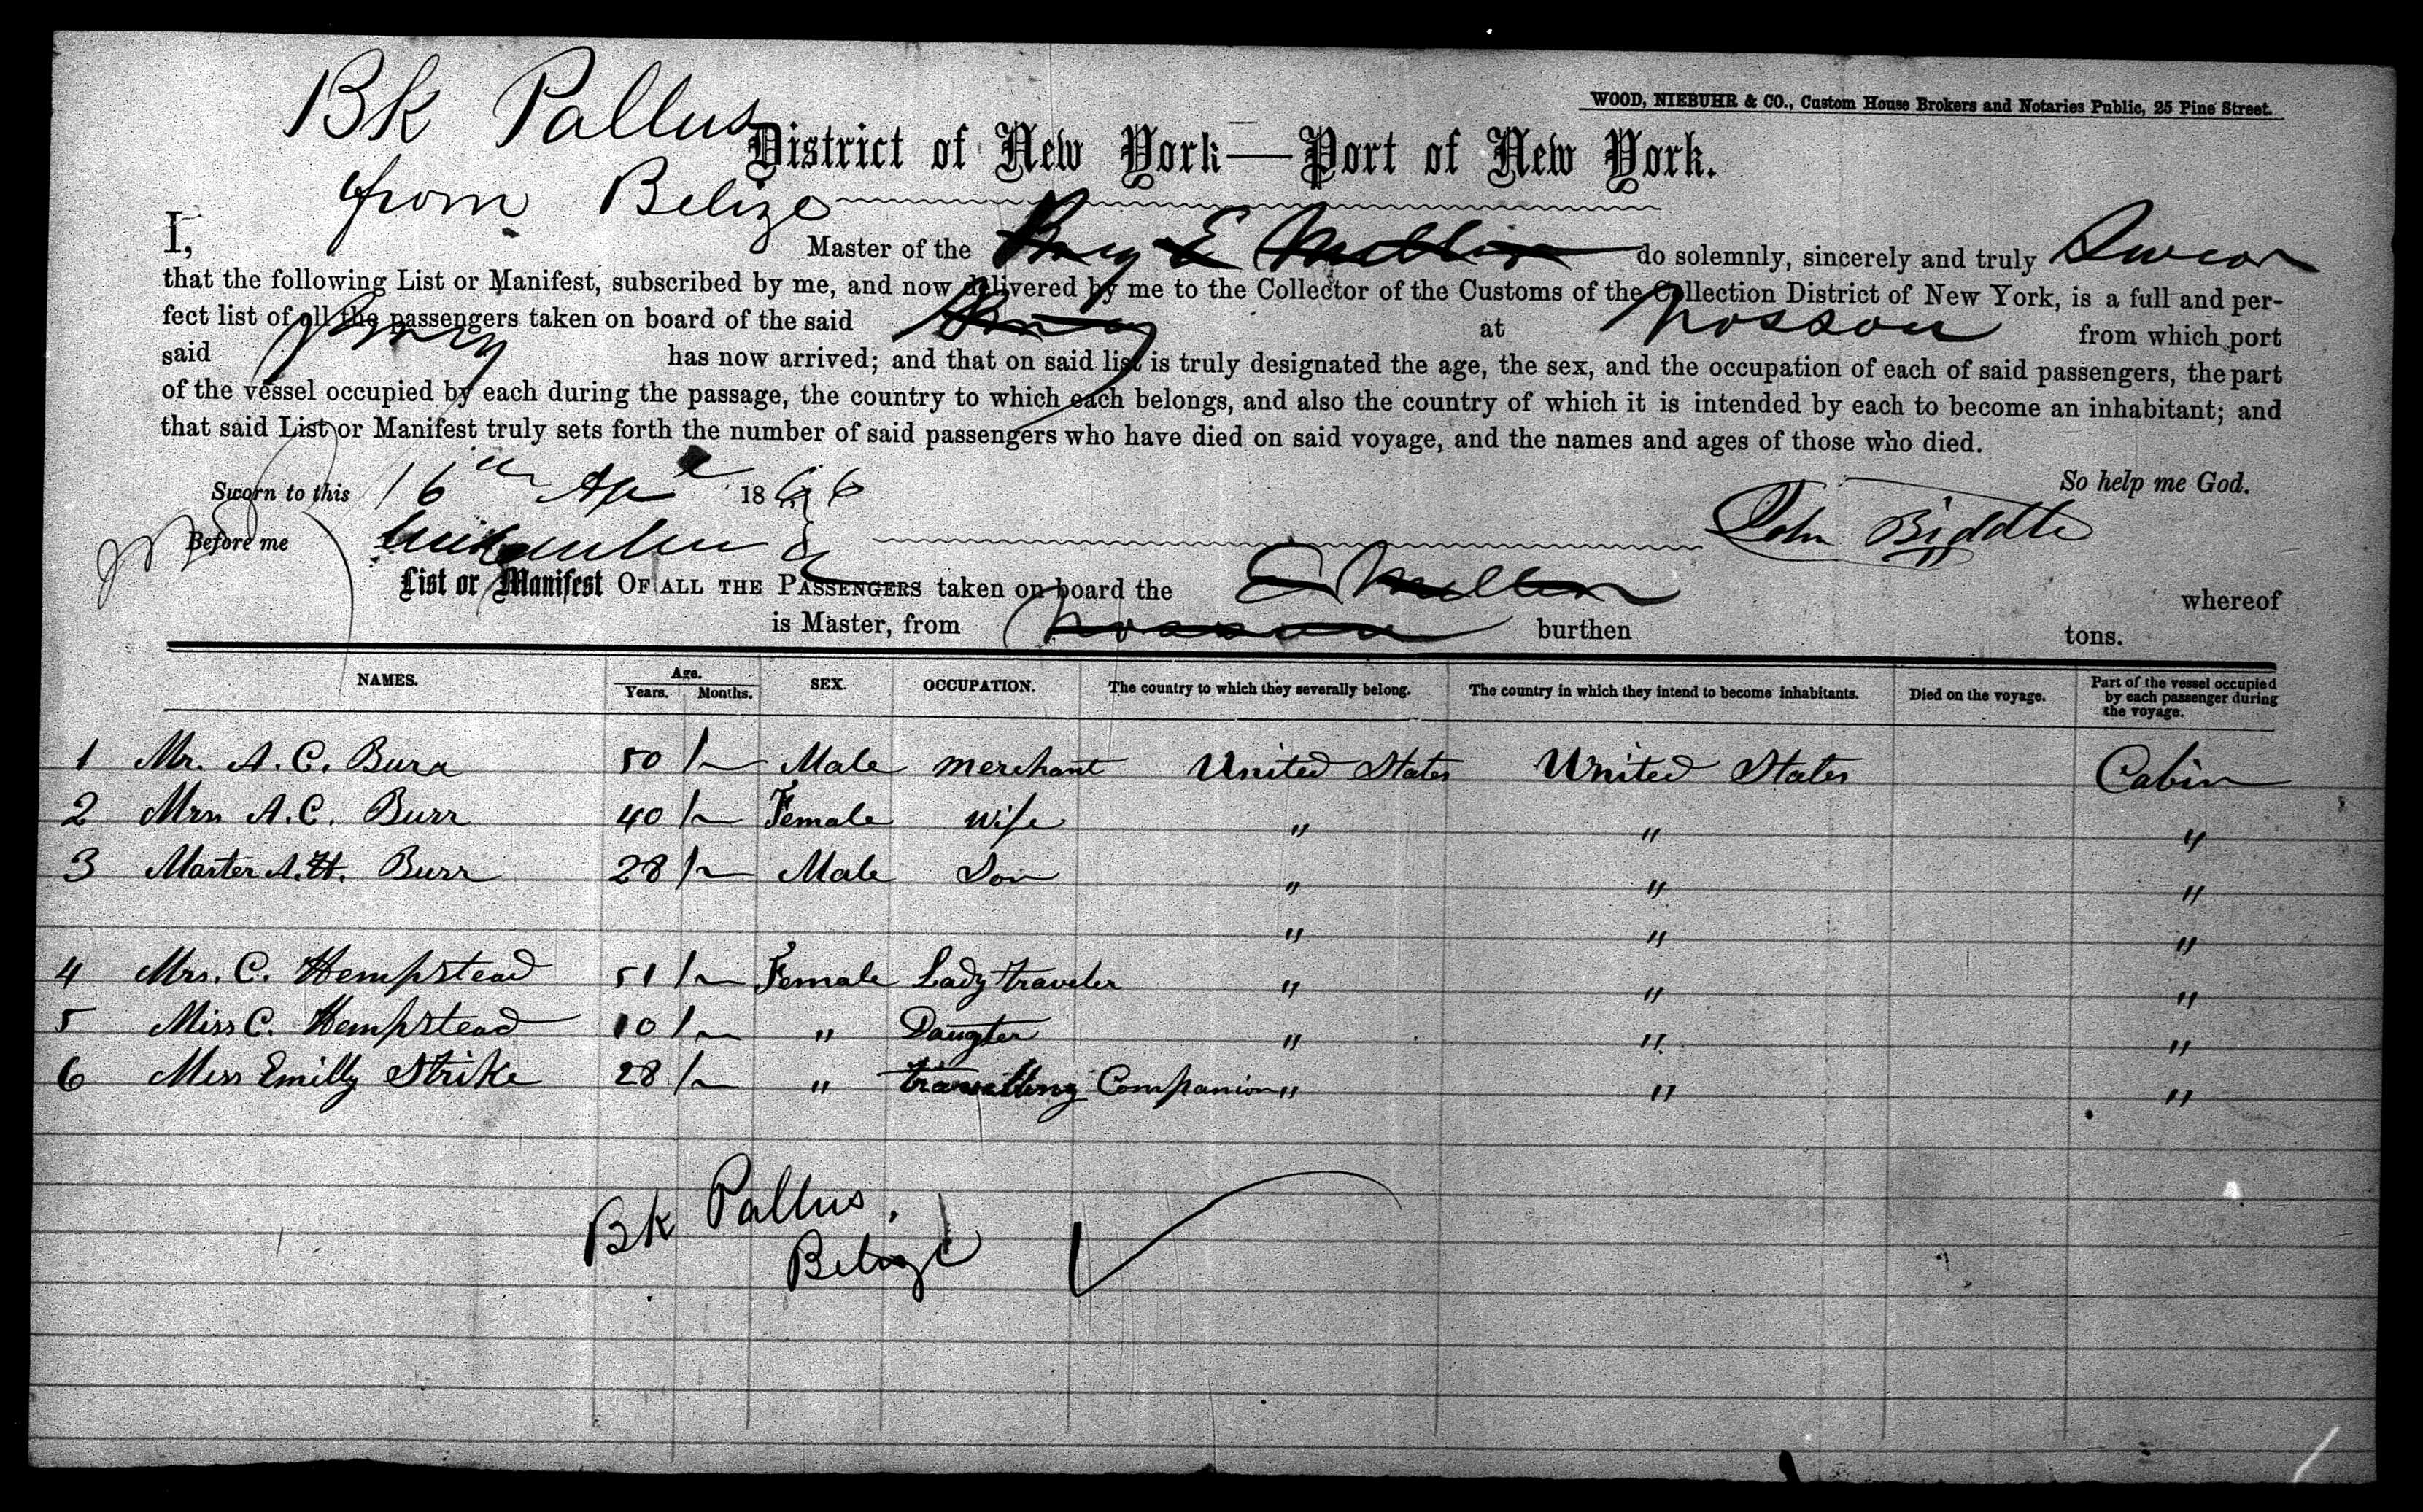 Bk Pallus
from Belize
WOOD, NIEBUHR & CO., Custom House Brokers and Notaries Public, 25 Pine Street.
District of New York—Port of New York.
I, Master of the Brig E Miller do solemnly, sincerely and truly Swear
that the following List or Manifest, subscribed by me, and now delivered by me to the Collector of the Customs of the Collection District of New York, is a full and per-
fect list of all the passengers taken on board of the said Brig at Nassau from which port
said Brig has now arrived; and that on said list is truly designated the age, the sex, and the occupation of each of said passengers, the part
of the vessel occupied by each during the passage, the country to which each belongs, and also the country of which it is intended by each to become an inhabitant; and
that said List or Manifest truly sets forth the number of said passengers who have died on said voyage, and the names and ages of those who died.
So help me God.
Sworn to this 16th Apl 1866
Before me John Biddle
List or Manifest OF ALL THE PASSENGERS taken on board the E Miller whereof
is Master, from Nassau burthen tons.
NAMES. Age. Years. Months. SEX. OCCUPATION. The country to which they severally belong. The country in which they intend to become inhabitants. Died on the voyage. Part of the vessel occupied by each passenger during the voyage.
1 Mr. A. C. Burr 50 /~ Male merchant United States United States Cabin
2 Mrs A. C. Burr 40 /~ Female Wife " " "
3 Master A. H. Burr 28 /~ Male Son " " "
" " "
4 Mrs. C. Hempstead 51 /~ Female Lady traveler " " "
5 Miss C. Hempstead 10 /~ " Daugter " " "
6 Miss Emilly Strike 28 /~ " travelling Companion " " "
Bk Pallus,
Belize